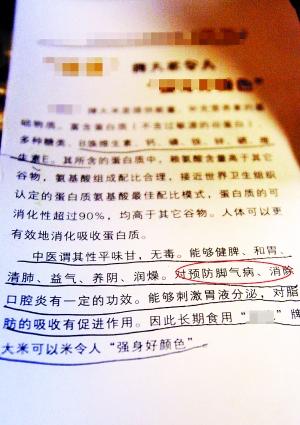 牌大米
础物质。富含蛋白质（不含过敏源的谷蛋白）、
多种糖类、B族维生素、钙、磷、铁、锌、硒、维
生素E。其所含的蛋白质中，赖氨酸含量高于其它
谷物，氨基酸组成配比合理，接近世界卫生组织
认定的蛋白质氨基酸最佳配比模式，蛋白质的可
消化性超过90%，均高于其它谷物。人体可以更
有效地消化吸收蛋白质。
中医谓其性平味甘，无毒。能够健脾、和胃、
清肺、益气、养阴、润燥。对预防脚气病、消除
口腔炎有一定的功效。能够刺激胃液分泌，对脂
肪的吸收有促进作用。因此长期食用“ 牌
大米可以米令人“强身好颜色”